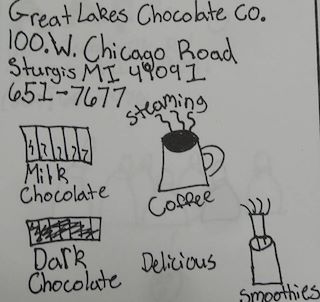 Great Lakes Chocolate Co.
100.W. Chicago Road
Sturgis MI 49091
651-7677
Steaming
Milk
Chocolate
Coffee
Dark
Chocolate
Delicious
Smoothies